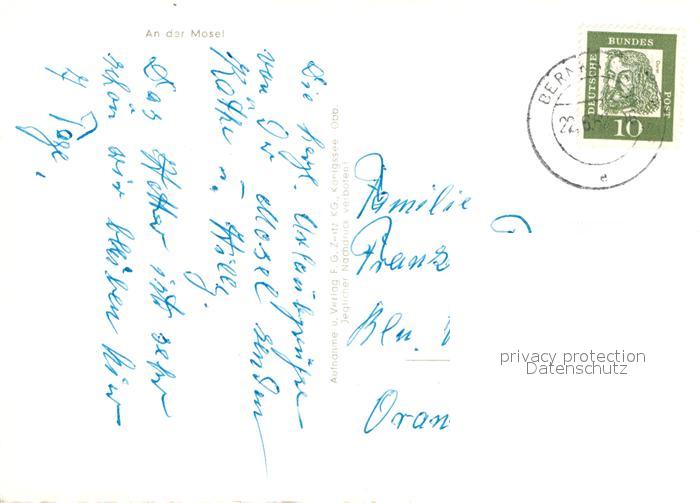 An der Mosel
Die herzl. Urlaubgrüße
von der Mosel senden
Käthe u. Willy.
Das Wetter ist sehr
schön wir bleiben hier
7 Tage.
Aufnahme u. Verlag F. G. Zeitz KG., Königssee Obb.
Jeglicher Nachdruck verboten!
Familie
Franz
Bln.
Oran
DEUTSCHE
BUNDES
POST
10
BERN
22.
e
privacy protection
Datenschutz